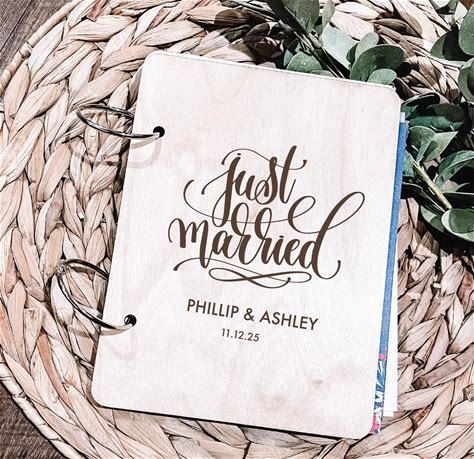 just
married
PHILLIP & ASHLEY
11.12.25